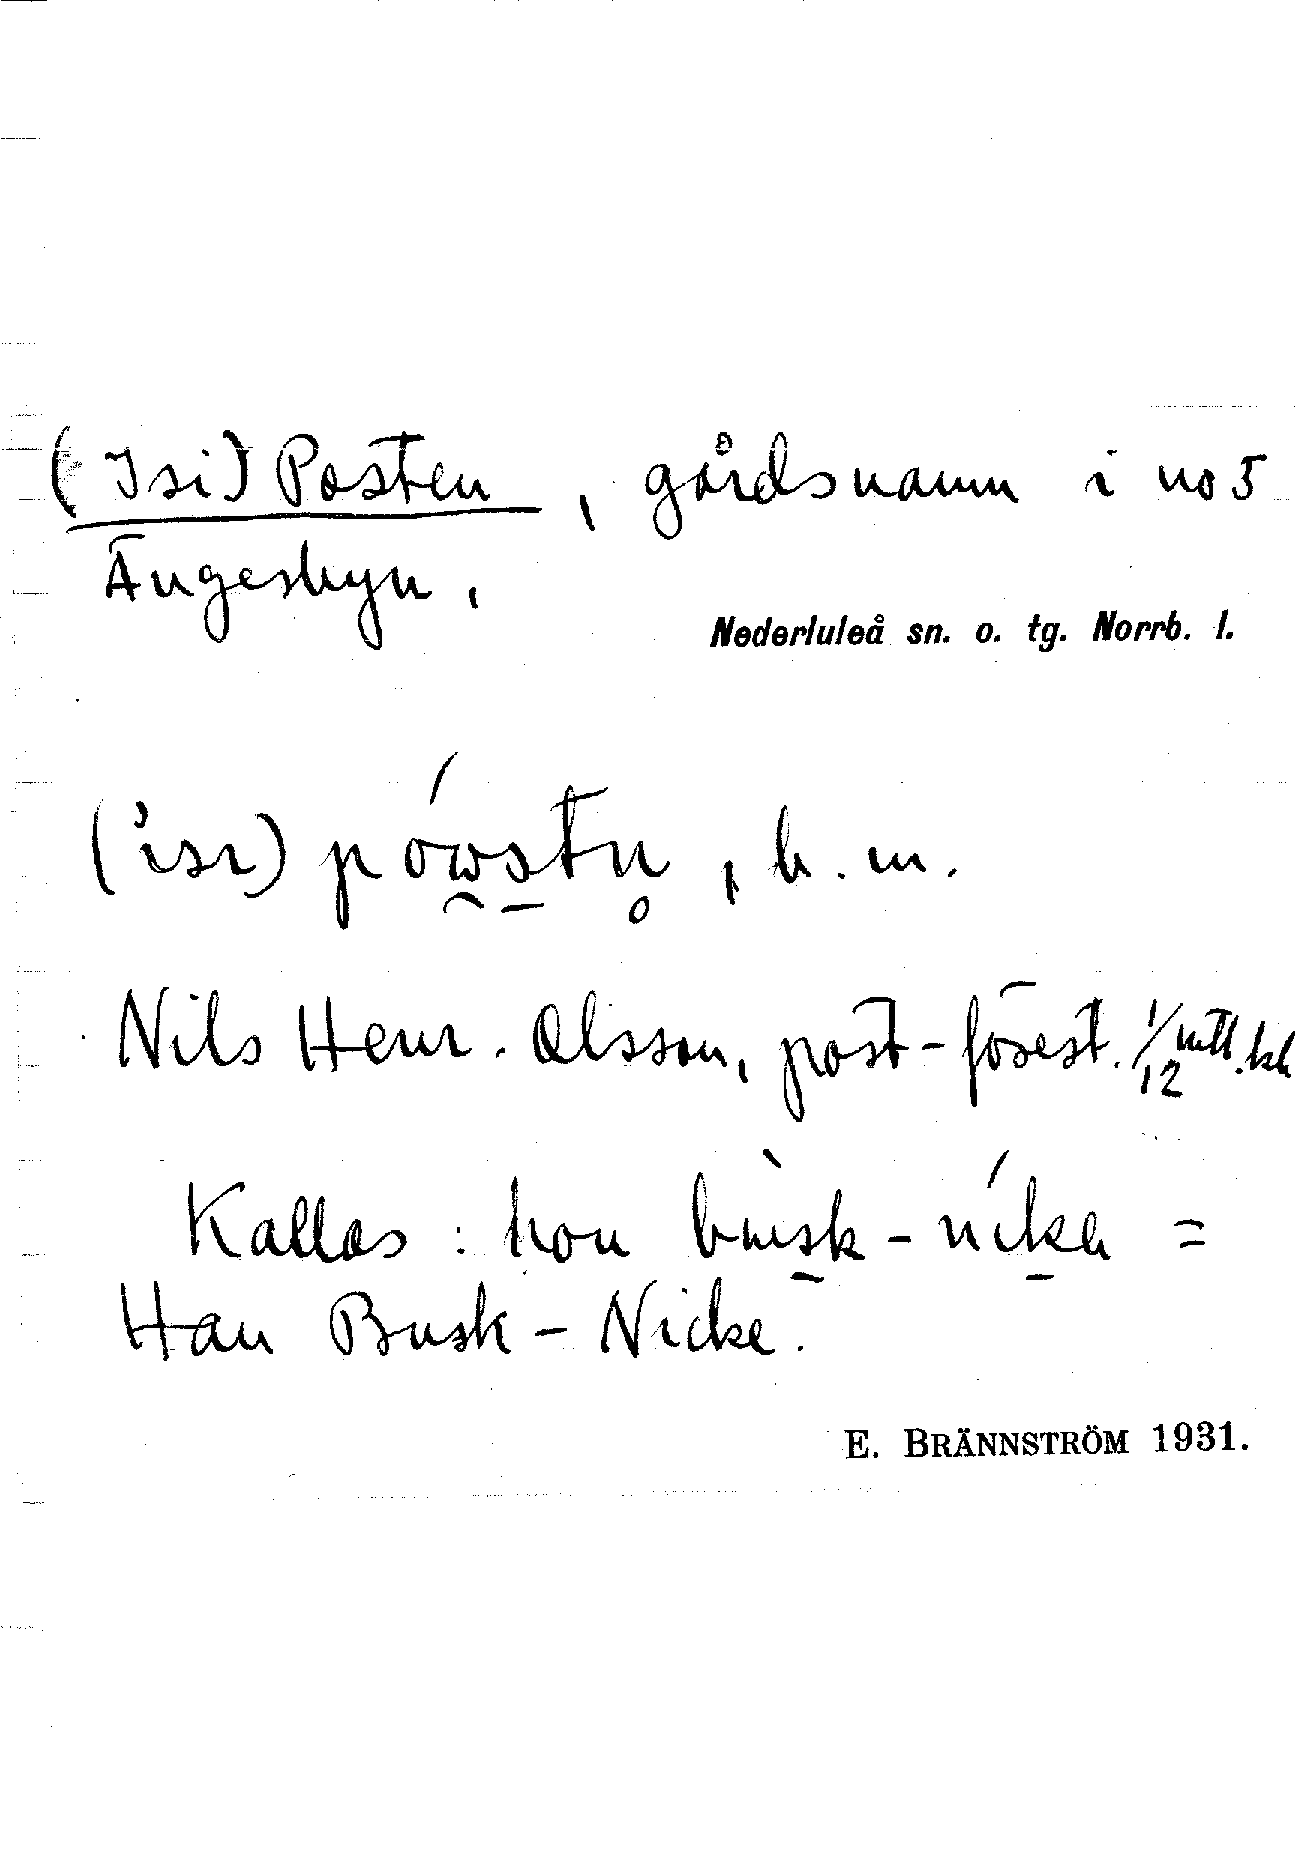 (Isi) Posten, gårdsnamn i no 5
Ängesbyn.
Nederluleå sn. o. tg. Norrb. l.
(isı) pówstn̥, b. m.
Nils Henr. Olsson, post-förest. 1/12 mtl. kl
Kallas: hon bùsk-níka =
Han Busk-Nicke.
E. BRÄNNSTRÖM 1931.